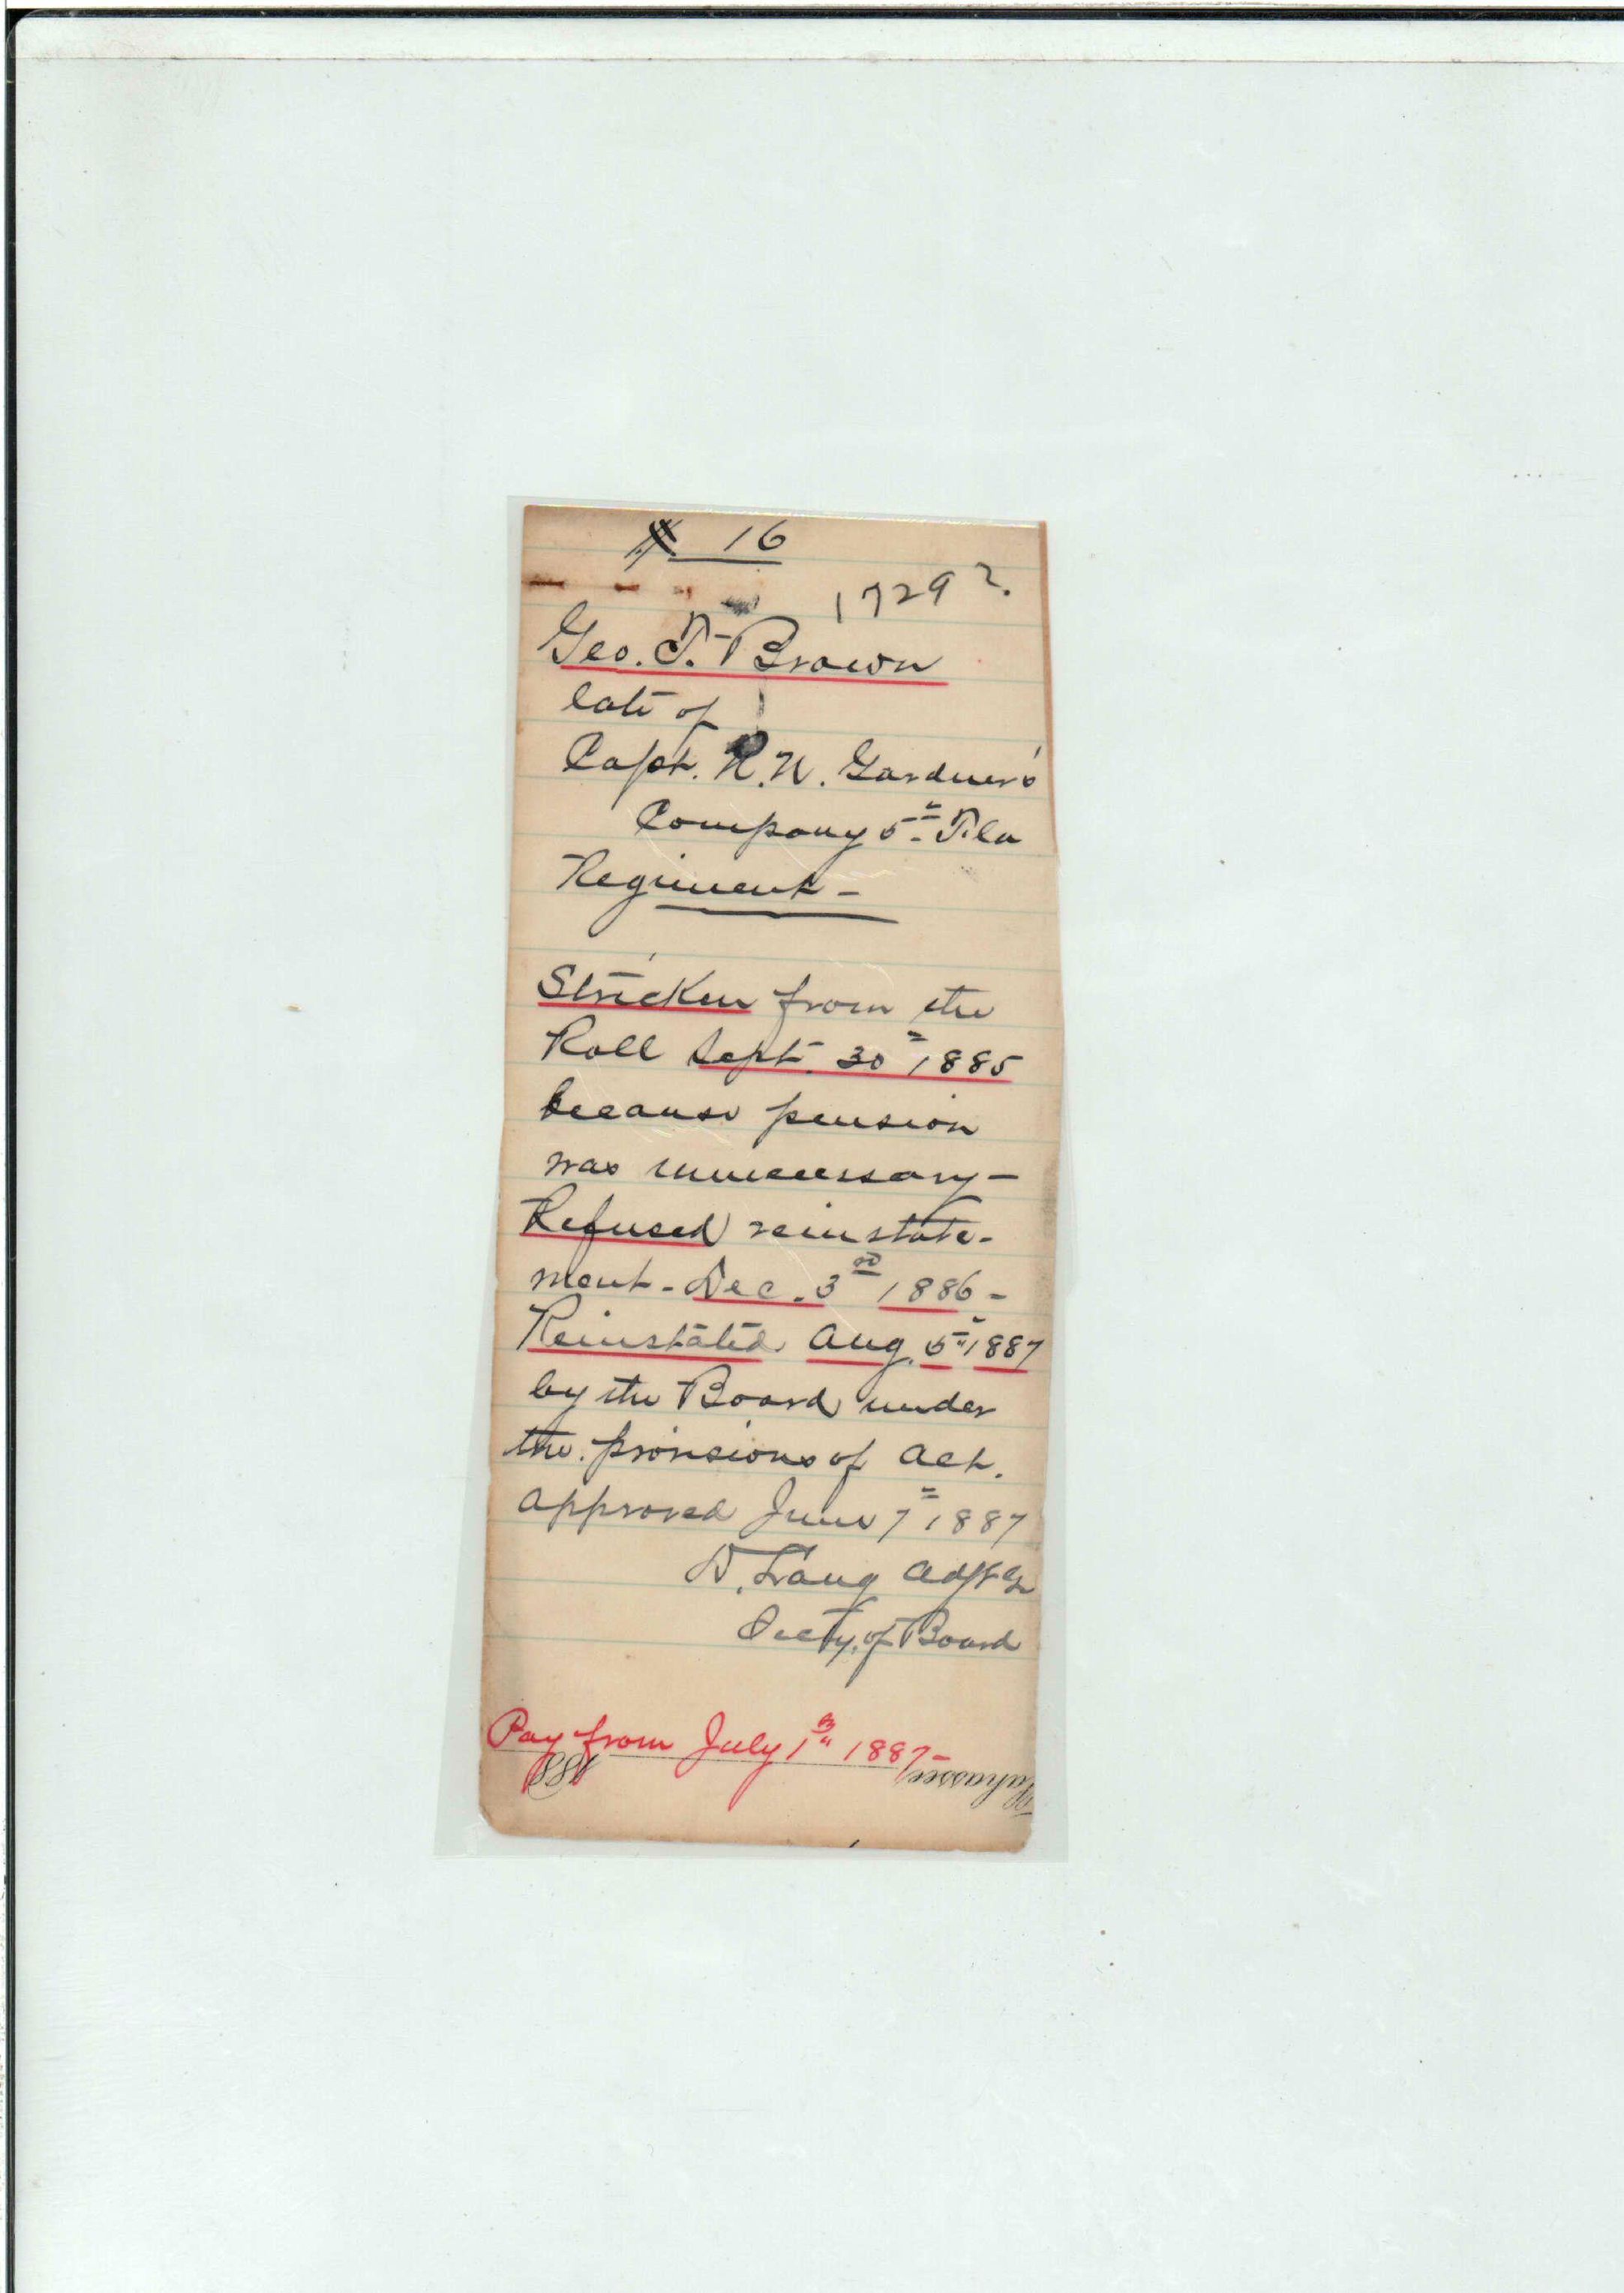 16
1729?
Geo. T. Brown
late of
Capt. R. N. Gardner's
Company 5th Fla
Regiment-
Stricken from the
Roll Sept. 30th 1885
because pension
was unnecessary-
Refused reinstate-
ment- Dec. 3rd 1886-
Reinstated Aug. 5th 1887
by the Board under
the provisions of act.
approved June 7th 1887
D. Lang
Secty. of Board
Pay from July 1st 1887-
188
ahassee,